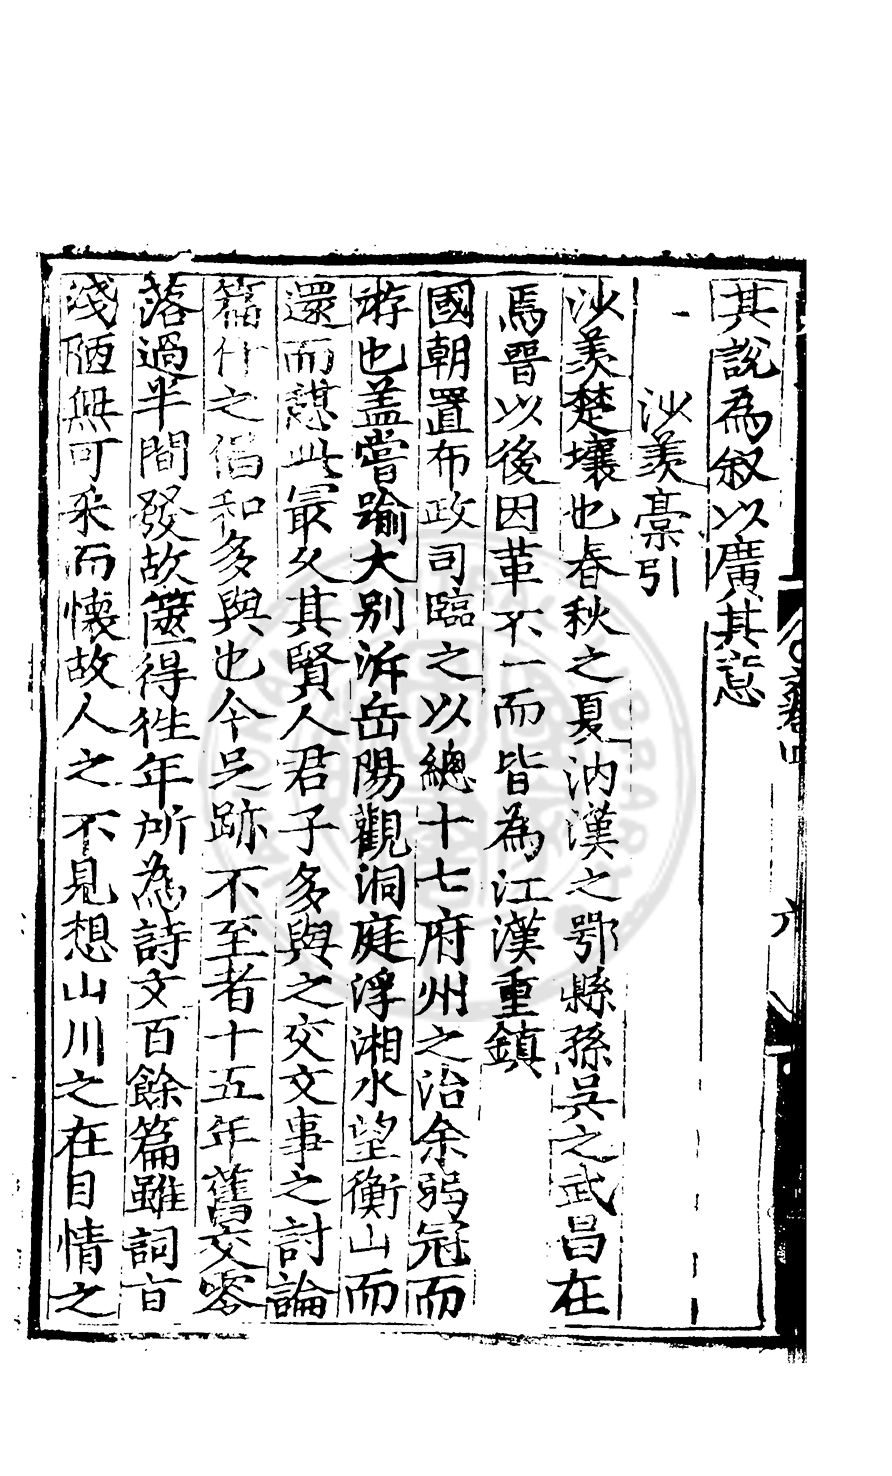 其說為叙以廣其意
沙羡藁引
沙羡楚壤也春秋之夏汭漢之鄂縣孫吳之武昌在
焉晉以後因革不一而皆為江漢重鎮
國朝置布政司臨之以總十七府州之治余弱冠而
游也盖嘗踰大别泝岳陽觀洞庭浮湘水望衡山而
還而憇此最久其賢人君子多與之交文事之討論
篇什之倡和多與也今足跡不至者十五年舊交零
落過半間發故篋得徃年所為詩文百餘篇雖詞旨
淺陋無可采而懷故人之不見想山川之在目情之
文卷四
六